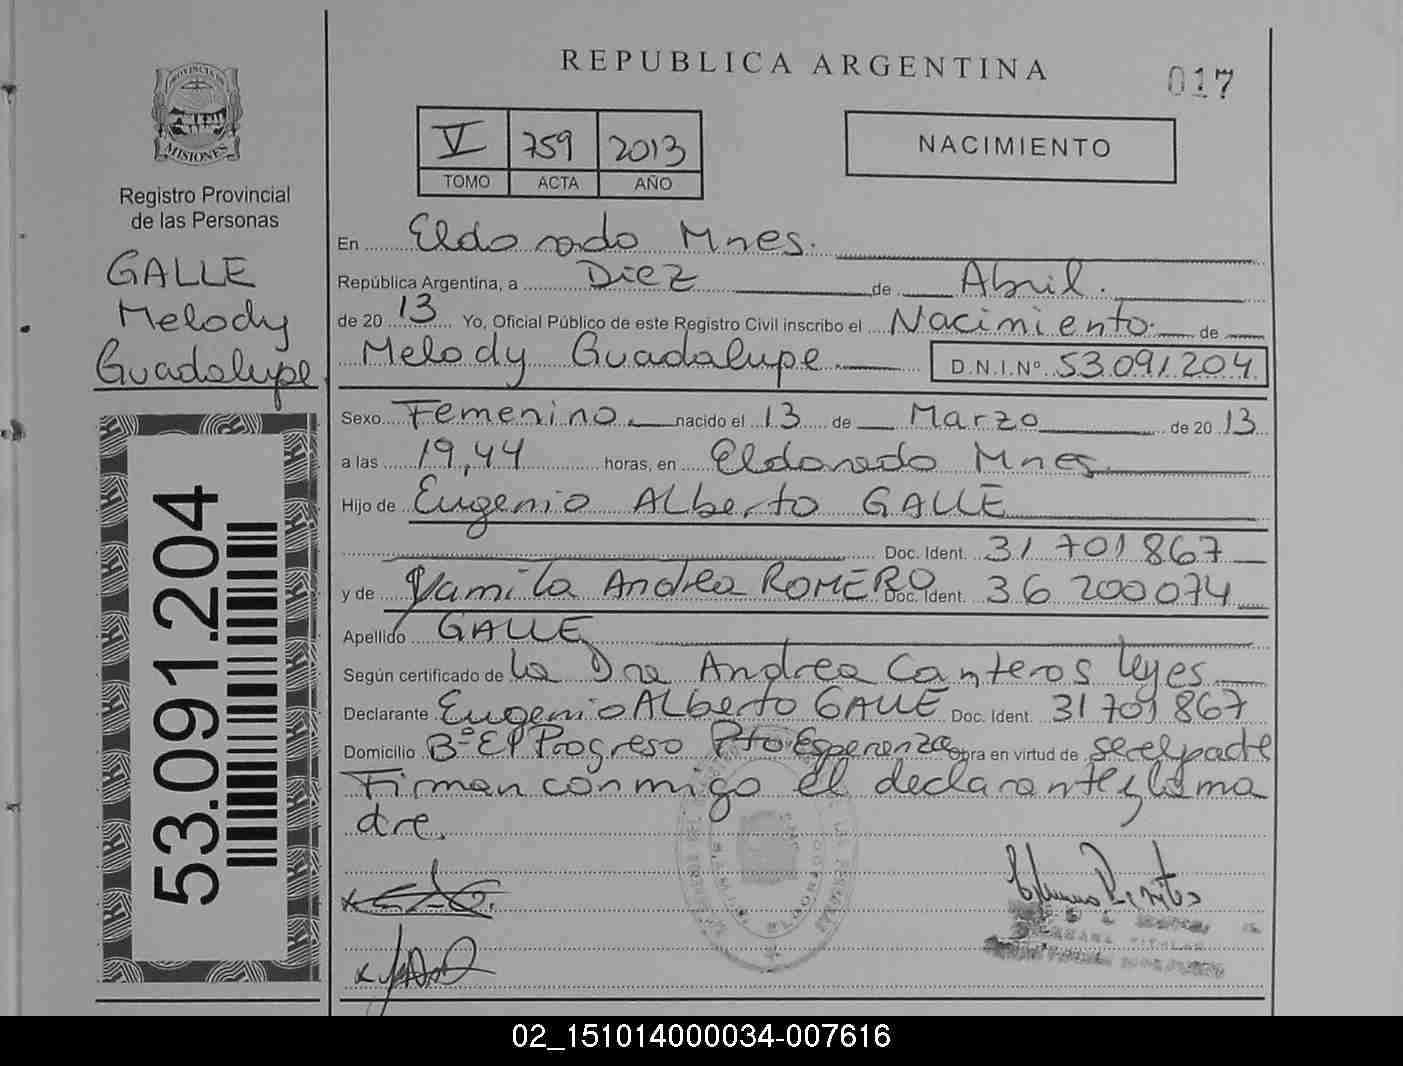 REPUBLICA ARGENTINA
017
PROVINCIA DE
MISIONES
Registro Provincial
de las Personas
GALLE
Melody
Guadalupe
53.091.204
V 759 2013
TOMO ACTA AÑO
NACIMIENTO
En Eldorado Mnes.
República Argentina, a Diez de Abril.
de 20 13 Yo, Oficial Público de este Registro Civil inscribo el Nacimiento de
Melody Guadalupe D.N.I.Nº 53.091.204
Sexo Femenino nacido el 13 de Marzo de 20 13
a las 19,44 horas, en Eldorado Mnes
Hijo de Eugenio Alberto GALLE
Doc. Ident. 31 701 867
y de Yamila Andrea ROMERO Doc. Ident. 36 200 074
Apellido GALLE
Según certificado de la Dra Andrea Canteros Leyes
Declarante Eugenio Alberto GALLE Doc. Ident. 31 701 867
Domicilio Bº El Progreso Pto Esperanza Obra en virtud de ser el padre
Firman conmigo el declarante y la ma
dre.
TITULAR
02_151014000034-007616